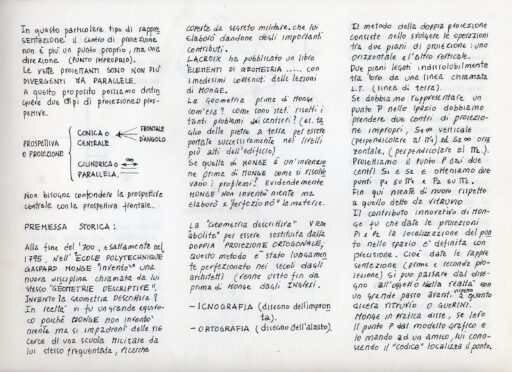 In questo particolare tipo di rappre
sentazione il centro di proiezione
non è più un punto proprio, ma una
direzione (PUNTO IMPROPRIO).
Le rette proiettanti sono non più
divergenti ma PARALLELE.
A questo proposito possiamo distin
guere due tipi di proiezione o pros-
pettive.
PROSPETTIVA
O PROIEZIONE
CONICA O
CENTRALE
FRONTALE
D'ANGOLO
CILINDRICA O
PARALLELA.
∞
Non bisogna confondere la prospettiva
centrale con la prospettiva frontale.
PREMESSA STORICA:
Alla fine del '700, esattamente nel
1795, nell'ECOLE POLYTECHNIQUE
GASPARD MONGE "inventò" una
nuova disciplina chiamata da lui
stesso "GEOMETRIE DESCRIPTIVE".
INVENTÒ LA GEOMETRIA DESCRITTIVA?
In realtà vi fu un grande equivo-
co poiché MONGE non inventò
niente ma si impadronì delle ric
cerce di una scuola militare da
lui stesso frequentata, ricerche
coperte da segreto militare, che lui
elaborò dandone degli importanti
contributi.
LACROIX ha pubblicato un libro
ELEMENTI DI GEOMETRIA ..... con
i medesimi contenuti delle lezioni
di MONGE.
La geometria prima di Monge
com'era? come sono stati risolti i
tanti problemi dei cantieri? (es. ta
glio delle pietre a terra per essere
portate successivamente nei livelli
più alti dell'edificio)
Se quella di MONGE è un'invenzio
ne prima di Monge come si risolve
vano i problemi? Evidentemente
MONGE non inventò niente ma
elaborò e "perfezionò" la materia.
La "Geometria descrittiva" viene
"abolita" per essere sostituita dalla
DOPPIA PROIEZIONE ORTOGONALE;
questo metodo è stato lungamen
te perfezionato nei secoli dagli
architetti (Wren visse fin da
prima di Monge dagli Inglesi.
- ICNOGRAFIA (disegno dell'impron
ta).
- ORTOGRAFIA (disegno dell'alzato).
Il metodo della doppia proiezione
consiste nello svolgere le operazioni
tra due piani di proiezione: uno
orizzontale e l'altro verticale.
Due piani legati indissolubilmente
tra loro da una linea chiamata
L.T. (linea di terra).
Se dobbiamo rappresentare un
punto P nello spazio dobbiamo
prendere due centri di proiezio-
ne impropri, S1∞ verticale
(perpendicolare al π1) ed S2∞ oriz
zontale. (perpendicolare al π2).
Proiettiamo il punto P dai due
centri S1 e S2 e otteniamo due
punti P1 su π1 e P2 su π2.
Fin qui niente di nuovo rispetto
a quello detto da VITRUVIO
Il contributo innovativo di Mon-
ge fu che date le proiezioni
P1 e P2 la localizzazione del pun
to nello spazio è definita con
precisione. Cioè date le rappre
sentazione (prima e seconda pro-
iezione) si può parlare del dise-
gno all'oggetto nella realtà con
un grande passo avanti rispetto a quanto
diceva VITRUVIO o GUERINI.
Monge in pratica disse, se levo
il punto P dal modello grafico e
lo mando ad un amico, lui cono-
scendo il "codice" localizza il punto.